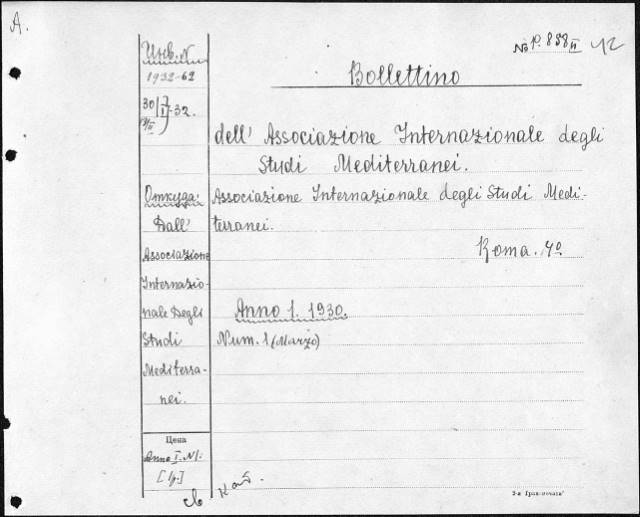 A.
№ р. 838 II 42
Инв. №
1932-62
30/I-32.
Bollettino
dell' Associazione Internazionale degli
Studi Mediterranei.
Откуда:
Dall'
Associazione
Internazio-
nale Degli
Studi
Mediterra-
nei.
Associazione Internazionale degli Studi Medi-
terranei.
Roma. 4º
Anno 1. 1930.
Num. 1 (Marzo)
Цена
Anno I. N1.
каб.